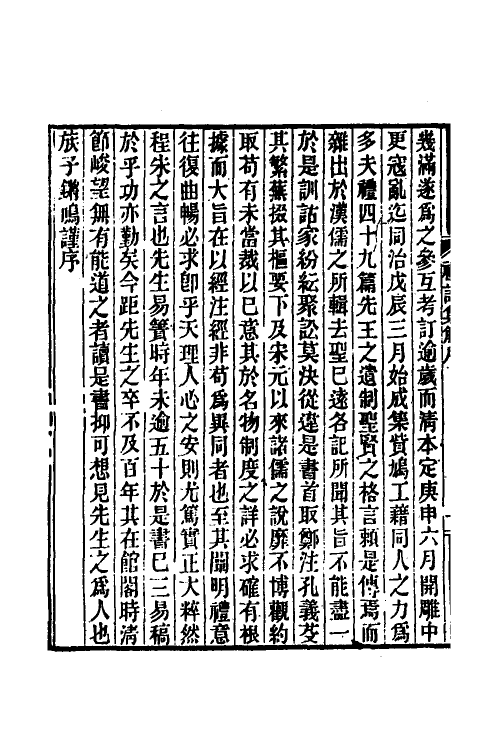 幾滿遂爲之參互考訂逾歲而清本定庚申六月開雕中
更寇亂迄同治戊辰三月始成集貲鳩工藉同人之力爲
多夫禮四十九篇先王之遺制聖賢之格言賴是傳焉而
雜出於漢儒之所輯去聖已遠各記所聞其旨不能盡一
於是訓詁家紛紜聚訟莫決從違是書首取鄭注孔義芟
其繁蕪掇其樞要下及宋元以來諸儒之說靡不博觀約
取苟有未當裁以已意其於名物制度之詳必求確有根
據而大旨在以經注經非苟爲異同者也至其闡明禮意
往復曲暢必求卽乎天理人心之安則尤篤實正大粹然
程朱之言也先生易簀時年未逾五十於是書已三易稿
於乎功亦勤矣今距先生之卒不及百年其在館閣時清
節峻望無有能道之者讀是書抑可想見先生之爲人也
族子鏘鳴謹序
禮記集解